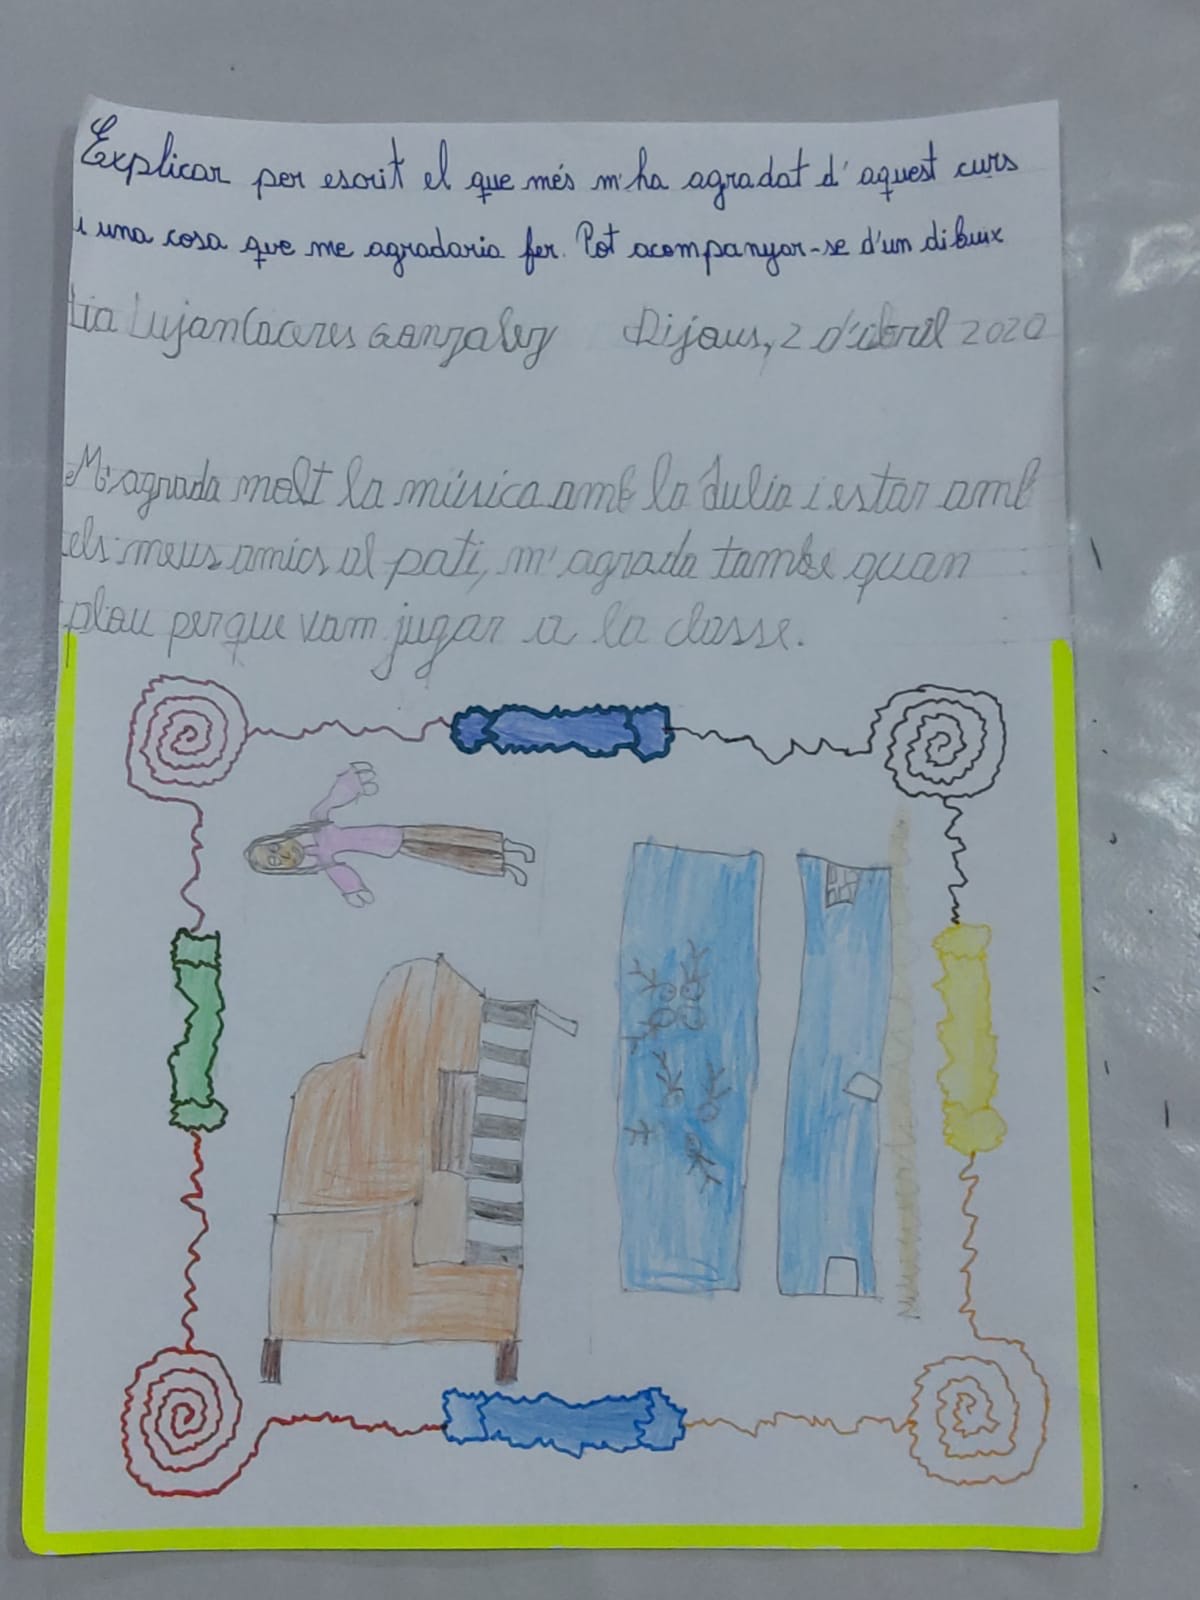 Explicar per escrit el que més m'ha agradat d'aquest curs
i una cosa que me agradaria fer. Pot acompanyar-se d'un dibuix
Lia Lujan Caceres Gonzalez Dijous, 2 d'abril 2020
M'agrada molt la música amb la Julia i estar amb
els meus amics al pati, m'agrada tambe quan
plou perque vam jugar a la classe.